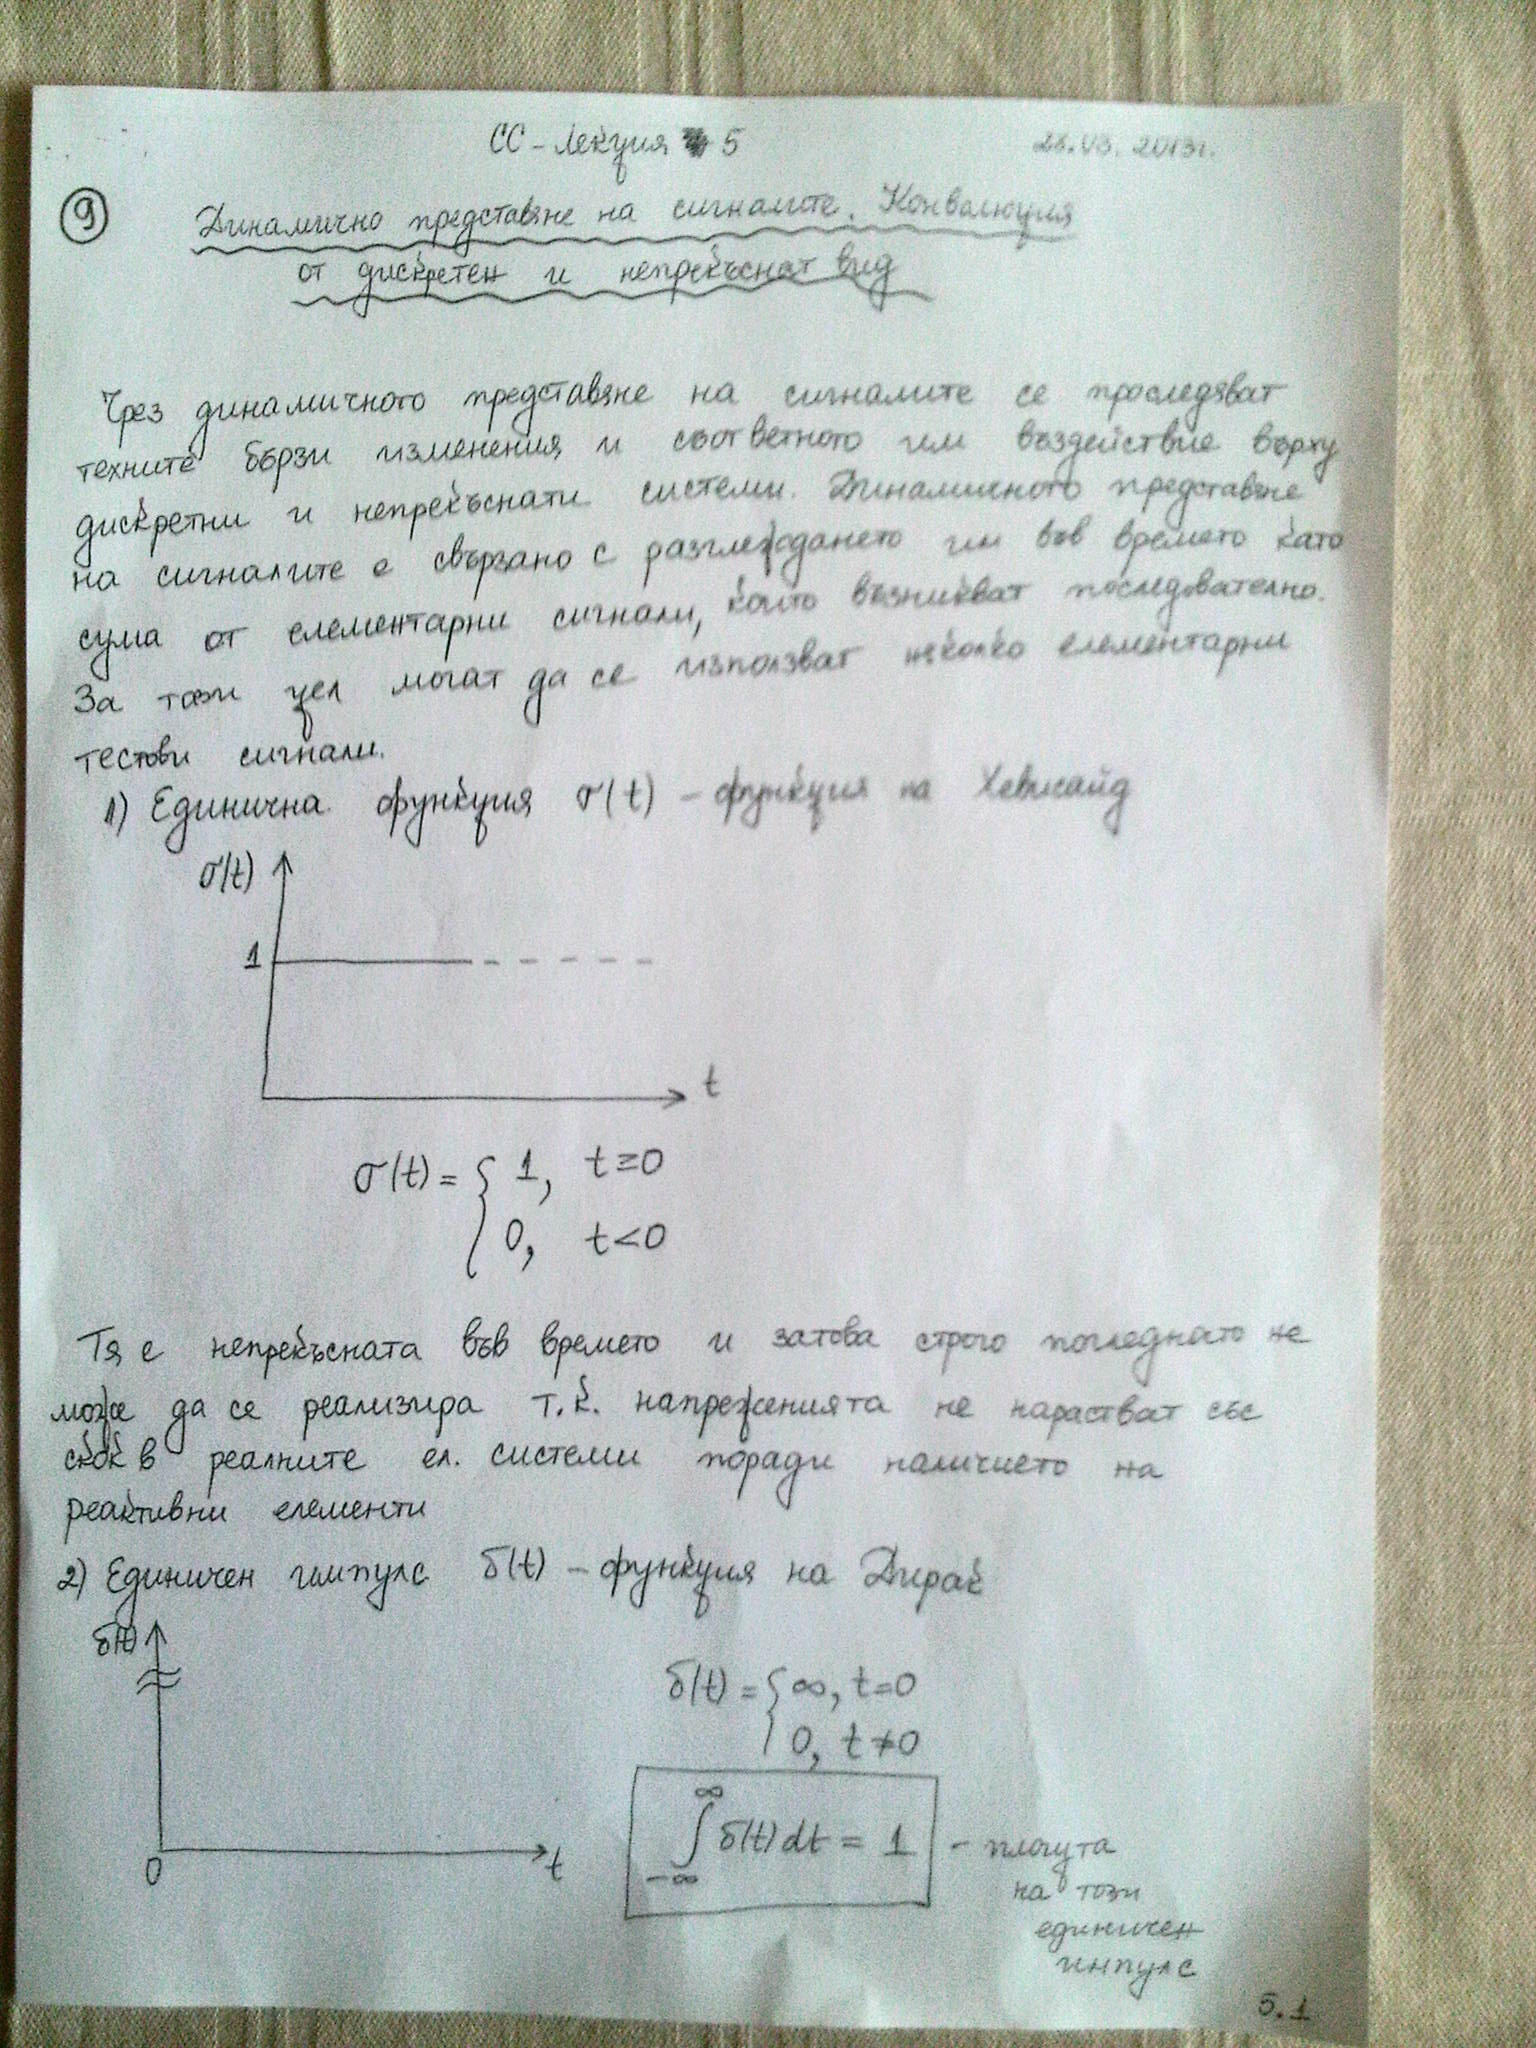 СС - Лекция 5
28.03.2013г.
9
Динамично представяне на сигналите. Конволюция
от дискретен и непрекъснат вид
Чрез динамичното представяне на сигналите се проследяват
техните бързи изменения и съответното им въздействие върху
дискретни и непрекъснати системи. Динамичното представяне
на сигналите е свързано с разглеждането им във времето като
сума от елементарни сигнали, които възникват последователно.
За тази цел могат да се използват няколко елементарни
тестови сигнали.
1) Единична функция σ(t) - функция на Хевисайд
σ(t)
1
t
σ(t) = { 1, t≥0
0, t<0
Тя е непрекъсната във времето и затова строго погледнато не
може да се реализира т.к. напреженията не нарастват със
скок в реалните ел. системи поради наличието на
реактивни елементи
2) Единичен импулс δ(t) - функция на Дирак
δ(t)
0
t
δ(t) = { ∞, t=0
0, t≠0
∞
∫ δ(t) dt = 1 - площта
-∞
на този
единичен
импулс
5.1